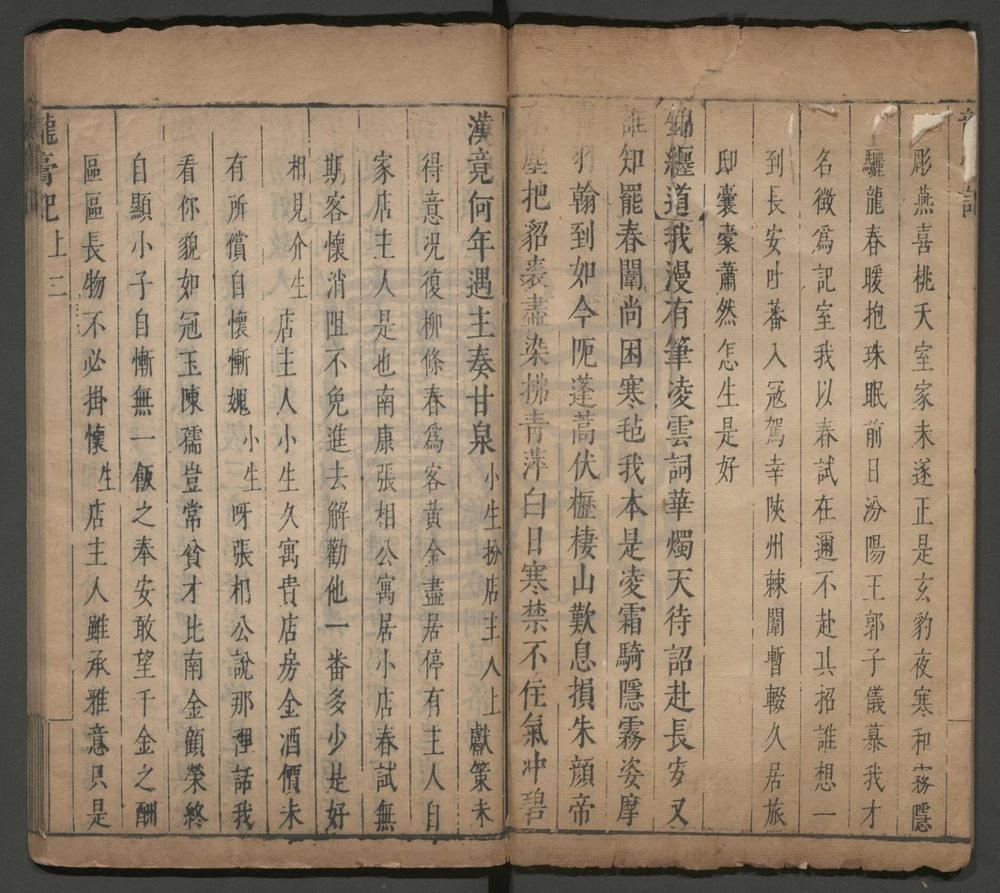 彫燕喜桃夭室家未遂正是玄豹夜寒和霧隱
驪龍春暖抱珠眠前日汾陽王郭子儀慕我才
名徵爲記室我以春試在邇不赴其招誰想一
到長安吐蕃入冦駕幸陝州棘闈暫輟久居旅
邸囊橐蕭然怎生是好
錦纏道我漫有筆凌雲詞華燭天待詔赴長安又
誰知罷春闈尚困寒毡我本是凌霜騎隱霧姿摩
霄羽翰到如今阨蓬蒿伏櫪棲山歎息損朱顔帝
塵把貂裘盡染拂青萍白日寒禁不住氣冲碧
漢竟何年遇主奏甘泉小生扮店主人上獻策未
得意況復柳條春爲客黃金盡居停有主人自
家店主人是也南康張相公寓居小店春試無
期客懷消阻不免進去解勸他一番多少是好
相見介生店主人小生久寓貴店房金酒價未
有所償自懷慚媿小生呀張相公說那裡話我
看你貌如冠玉陳孺豈常貧才比南金顧榮終
自顯小子自慚無一飯之奉安敢望千金之酬
區區長物不必掛懷生店主人雖承雅意只是
龍膏記上三